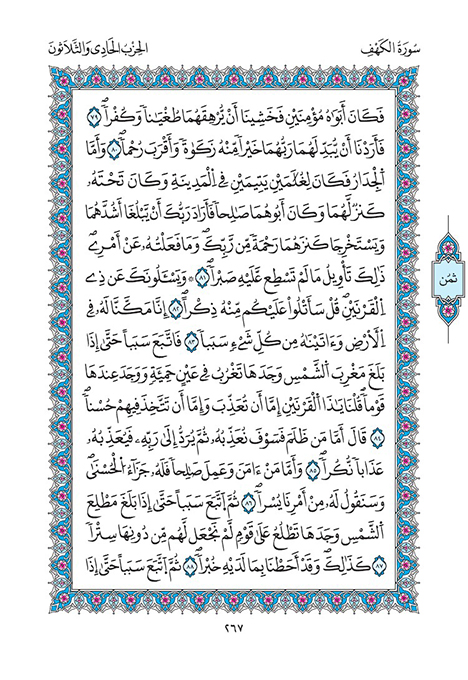 سُورَةُ الكَهْفِ
الحِزْبُ الحَادِي وَالثَّلَاثُونَ
فَكَانَ أَبَوَاهُ مُؤْمِنَيْنِ فَخَشِينَا أَنْ يُّرْهِقَهُمَا طُغْيَٰناً وَكُفْراً ٧٩
فَأَرَدْنَا أَنْ يُّبَدِّلَهُمَا رَبُّهُمَا خَيْراً مِّنْهُ زَكَوٰةً وَأَقْرَبَ رُحْماً ٨٠ وَأَمَّا
اَ۬لْجِدَارُ فَكَانَ لِغُلَٰمَيْنِ يَتِيمَيْنِ فِي اِ۬لْمَدِينَةِ وَكَانَ تَحْتَهُۥ
كَنزٌ لَّهُمَا وَكَانَ أَبُوهُمَا صَٰلِحاً فَأَرَادَ رَبُّكَ أَنْ يَّبْلُغَا أَشُدَّهُمَا
وَيَسْتَخْرِجَا كَنزَهُمَا رَحْمَةً مِّن رَّبِّكَ وَمَا فَعَلْتُهُۥ عَنْ أَمْرِي
ذَٰلِكَ تَأْوِيلُ مَا لَمْ تَسْطِع عَّلَيْهِ صَبْراً ٨١ وَيَسْـَٔلُونَكَ عَن ذِي
اِ۬لْقَرْنَيْنِ قُلْ سَأَتْلُواْ عَلَيْكُم مِّنْهُ ذِكْراً ٨٢ إِنَّا مَكَّنَّا لَهُۥ فِي
اِ۬لْأَرْضِ وَءَاتَيْنَٰهُ مِن كُلِّ شَيْءٍ سَبَباً ٨٣ فَاتَّبَعَ سَبَباً حَتَّىٰ إِذَا
بَلَغَ مَغْرِبَ اَ۬لشَّمْسِ وَجَدَهَا تَغْرُبُ فِي عَيْنٍ حَمِئَةٍ وَوَجَدَ عِندَهَا
قَوْماً قُلْنَا يَٰذَا اَ۬لْقَرْنَيْنِ إِمَّا أَن تُعَذِّبَ وَإِمَّا أَن تَتَّخِذَ فِيهِمْ حُسْناً
٨٤ قَالَ أَمَّا مَن ظَلَمَ فَسَوْفَ نُعَذِّبُهُۥ ثُمَّ يُرَدُّ إِلَىٰ رَبِّهِۦ فَيُعَذِّبُهُۥ
عَذَاباً نُّكُراً ٨٥ وَأَمَّا مَنْ ءَامَنَ وَعَمِلَ صَٰلِحاً فَلَهُۥ جَزَآءُ اُ۬لْحُسْنَىٰ
وَسَنَقُولُ لَهُۥ مِنْ أَمْرِنَا يُسْراً ٨٦ ثُمَّ اَتَّبَعَ سَبَباً حَتَّىٰ إِذَا بَلَغَ مَطْلِعَ
اَ۬لشَّمْسِ وَجَدَهَا تَطْلُعُ عَلَىٰ قَوْمٍ لَّمْ نَجْعَل لَّهُم مِّن دُونِهَا سِتْراً
٨٧ كَذَٰلِكَ وَقَدْ أَحَطْنَا بِمَا لَدَيْهِ خُبْراً ٨٨ ثُمَّ اَتَّبَعَ سَبَباً حَتَّىٰ إِذَا
ثُمُن
٢٦٧